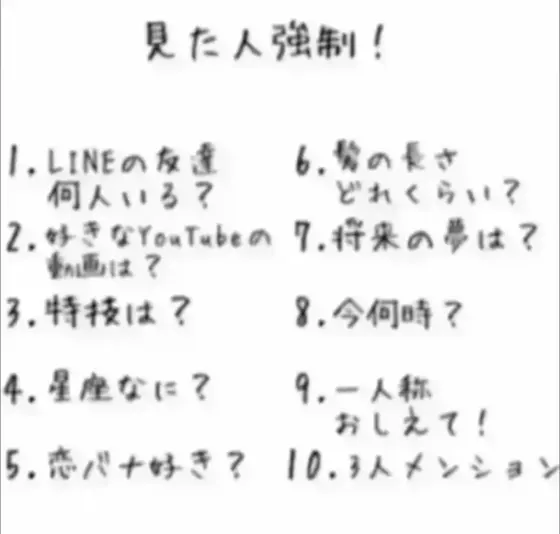 見た人強制!
1.LINEの友達
何人いる?
2.好きなYouTubeの
動画は?
3.特技は?
4.星座なに?
5.恋バナ好き?
6.髪の長さ
どれくらい?
7.将来の夢は?
8.今何時?
9.一人称
おしえて!
10.3人メンション